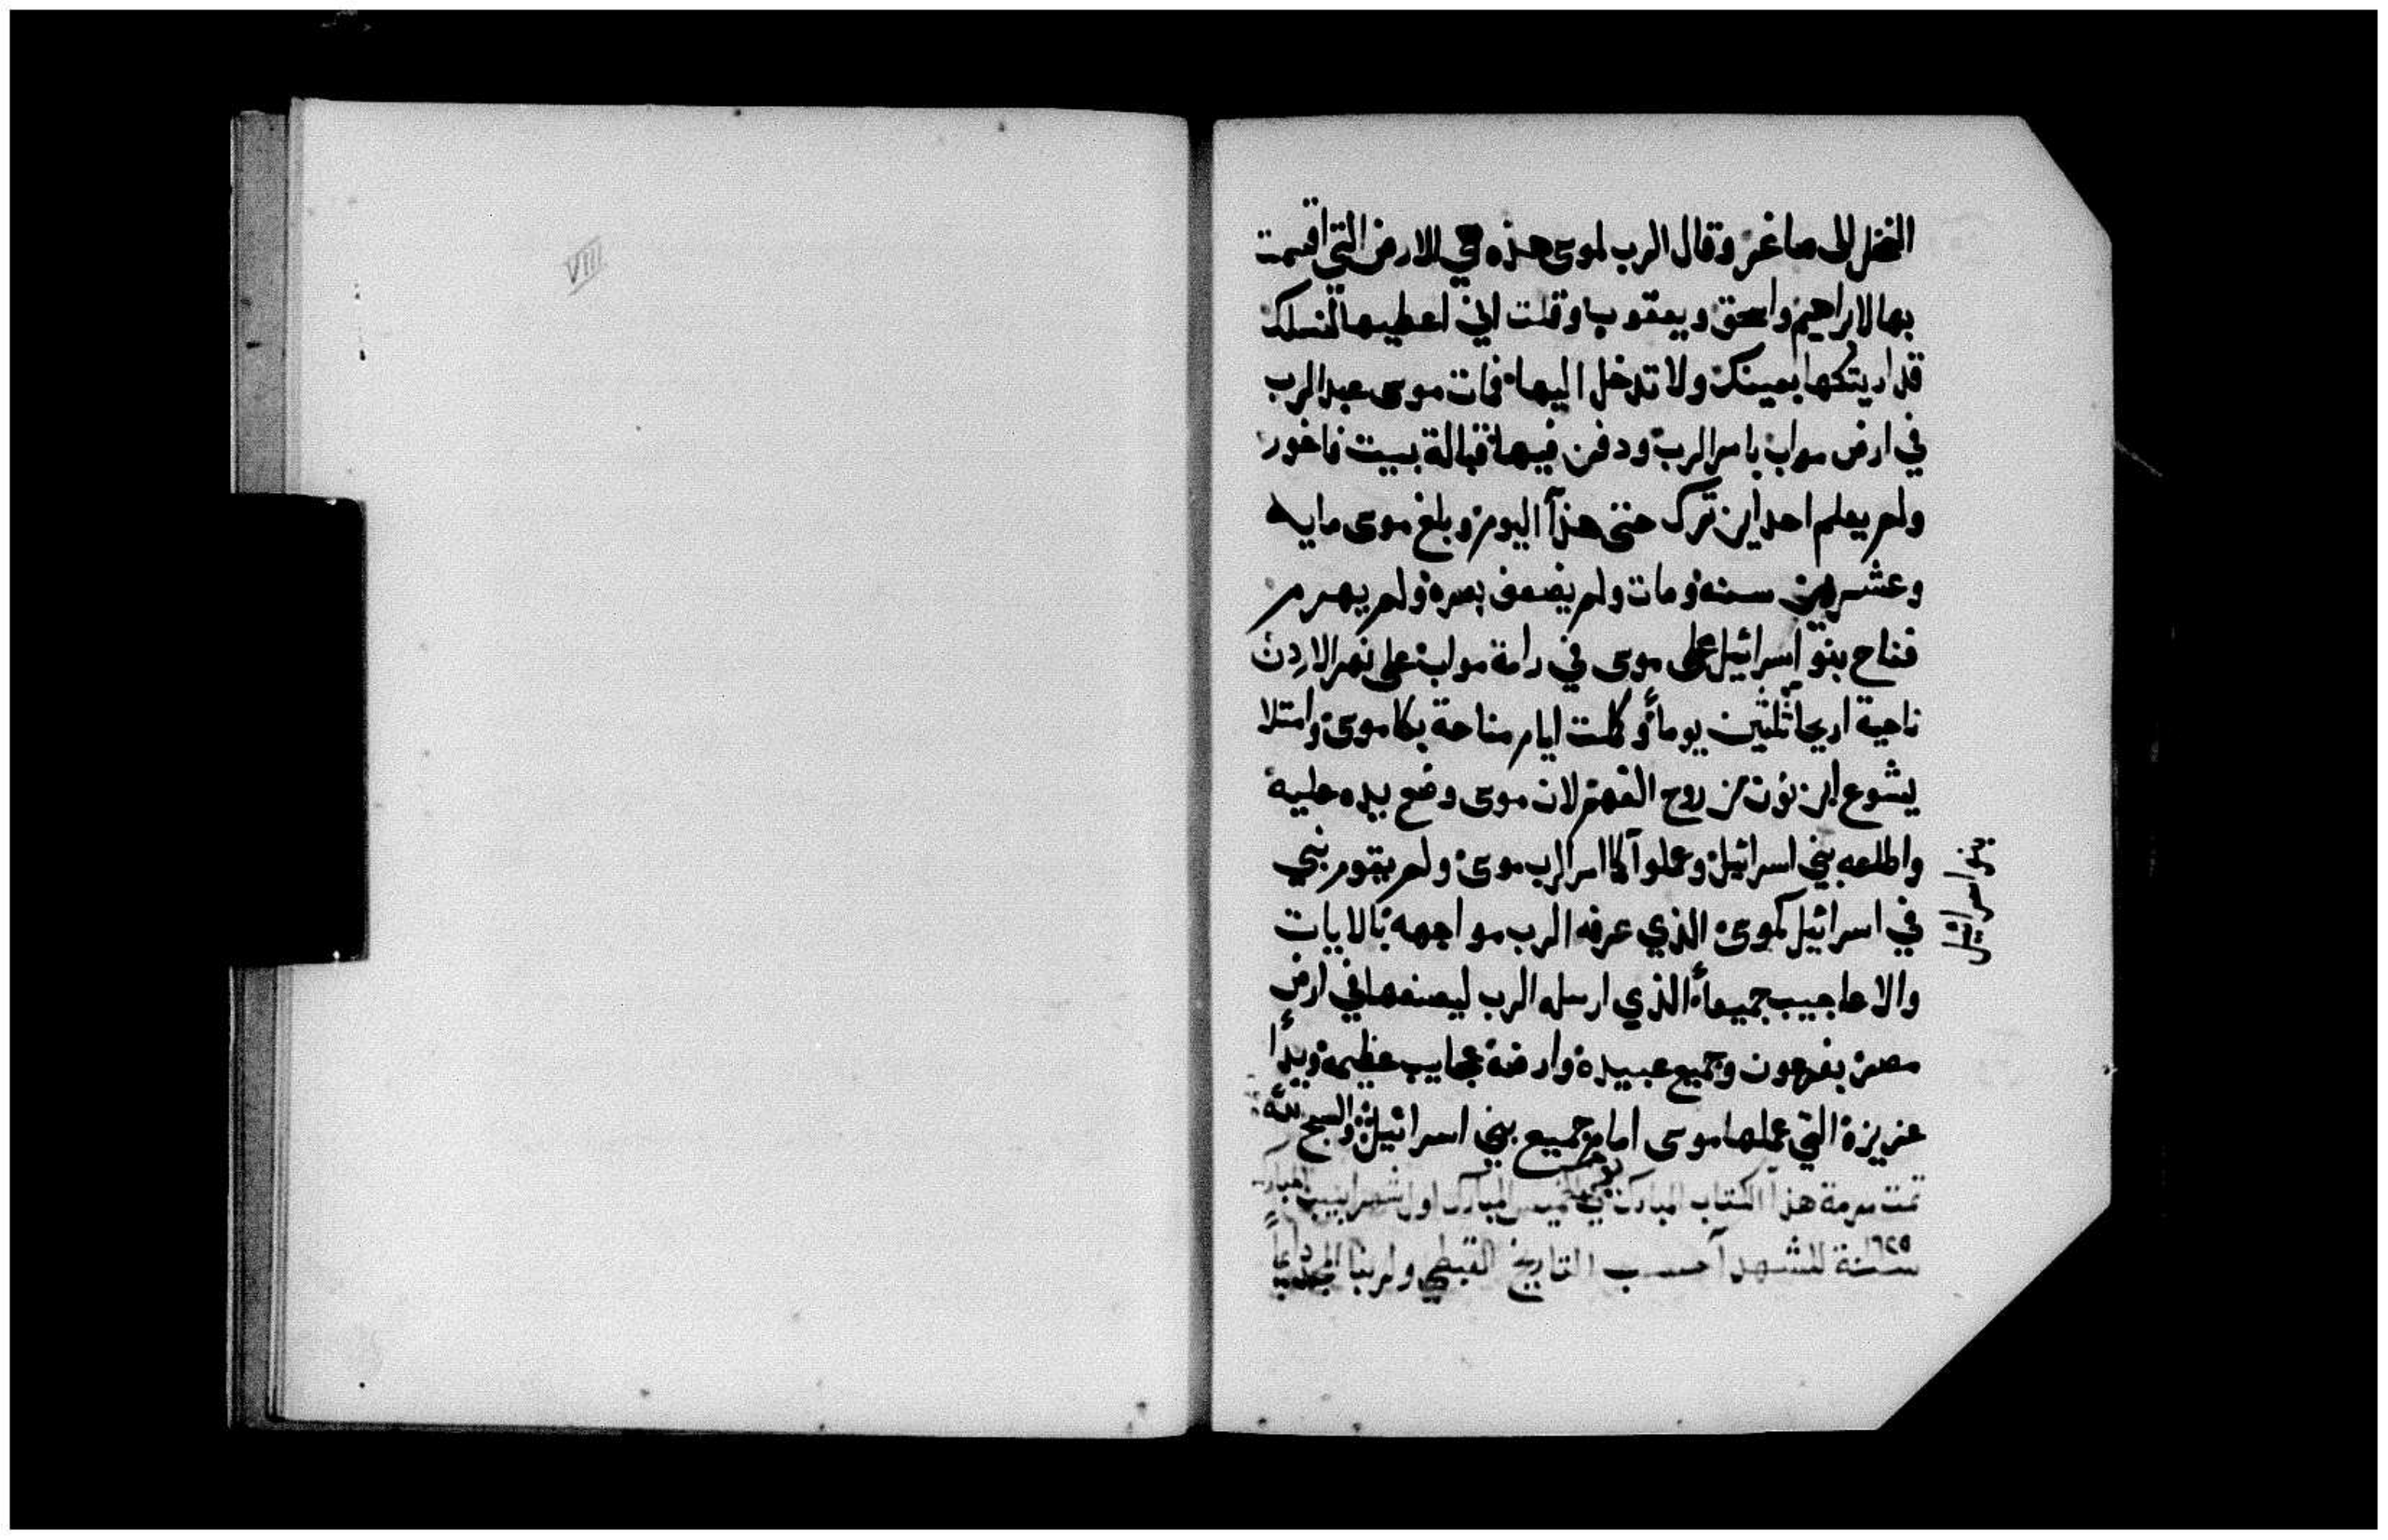 النخل الى صاغر وقال الرب لموسى هذه هي الارض التي اقسمت
بها لابراهيم واسحق ويعقوب وقلت اني اعطيها لنسلك
قد اريتكها بعينك ولا تدخل اليها فمات موسى عبد الرب
في ارض مواب بامر الرب ودفن فيها قبالة بيت فاغور
ولم يعلم احد اين ترك حتى هذا اليوم وبلغ موسى مايه
وعشرين سنة ومات ولم يضعف بصره ولم يهرم
فناح بنو اسرائيل على موسى في رامة مواب على نهر الاردن
ناحية اريحا ثلثين يوماً وكملت ايام مناحة بكا موسى وامتلا
يشوع ابن نون من روح الفهم لان موسى وضع يده عليه
واطاعه بني اسرائيل وعملوا كما امر الرب موسى ولم يقوم نبي
في اسرائيل كموسى الذي عرفه الرب مواجهه بالايات
والاعاجيب جميعاً الذي ارسله الرب ليصنعها في ارض
مصر بفرعون وجميع عبيده وارضه عجايب عظيمة ويداً
عزيزة التي عملها موسى امام جميع بني اسرائيل والسبح لله
بني اسرائيل
تمت مرمة هذا الكتاب المبارك المبارك اول شهر ابيب المبارك
سنة للشهدا حسب التاريخ القبطي ولربنا المجد
VIII